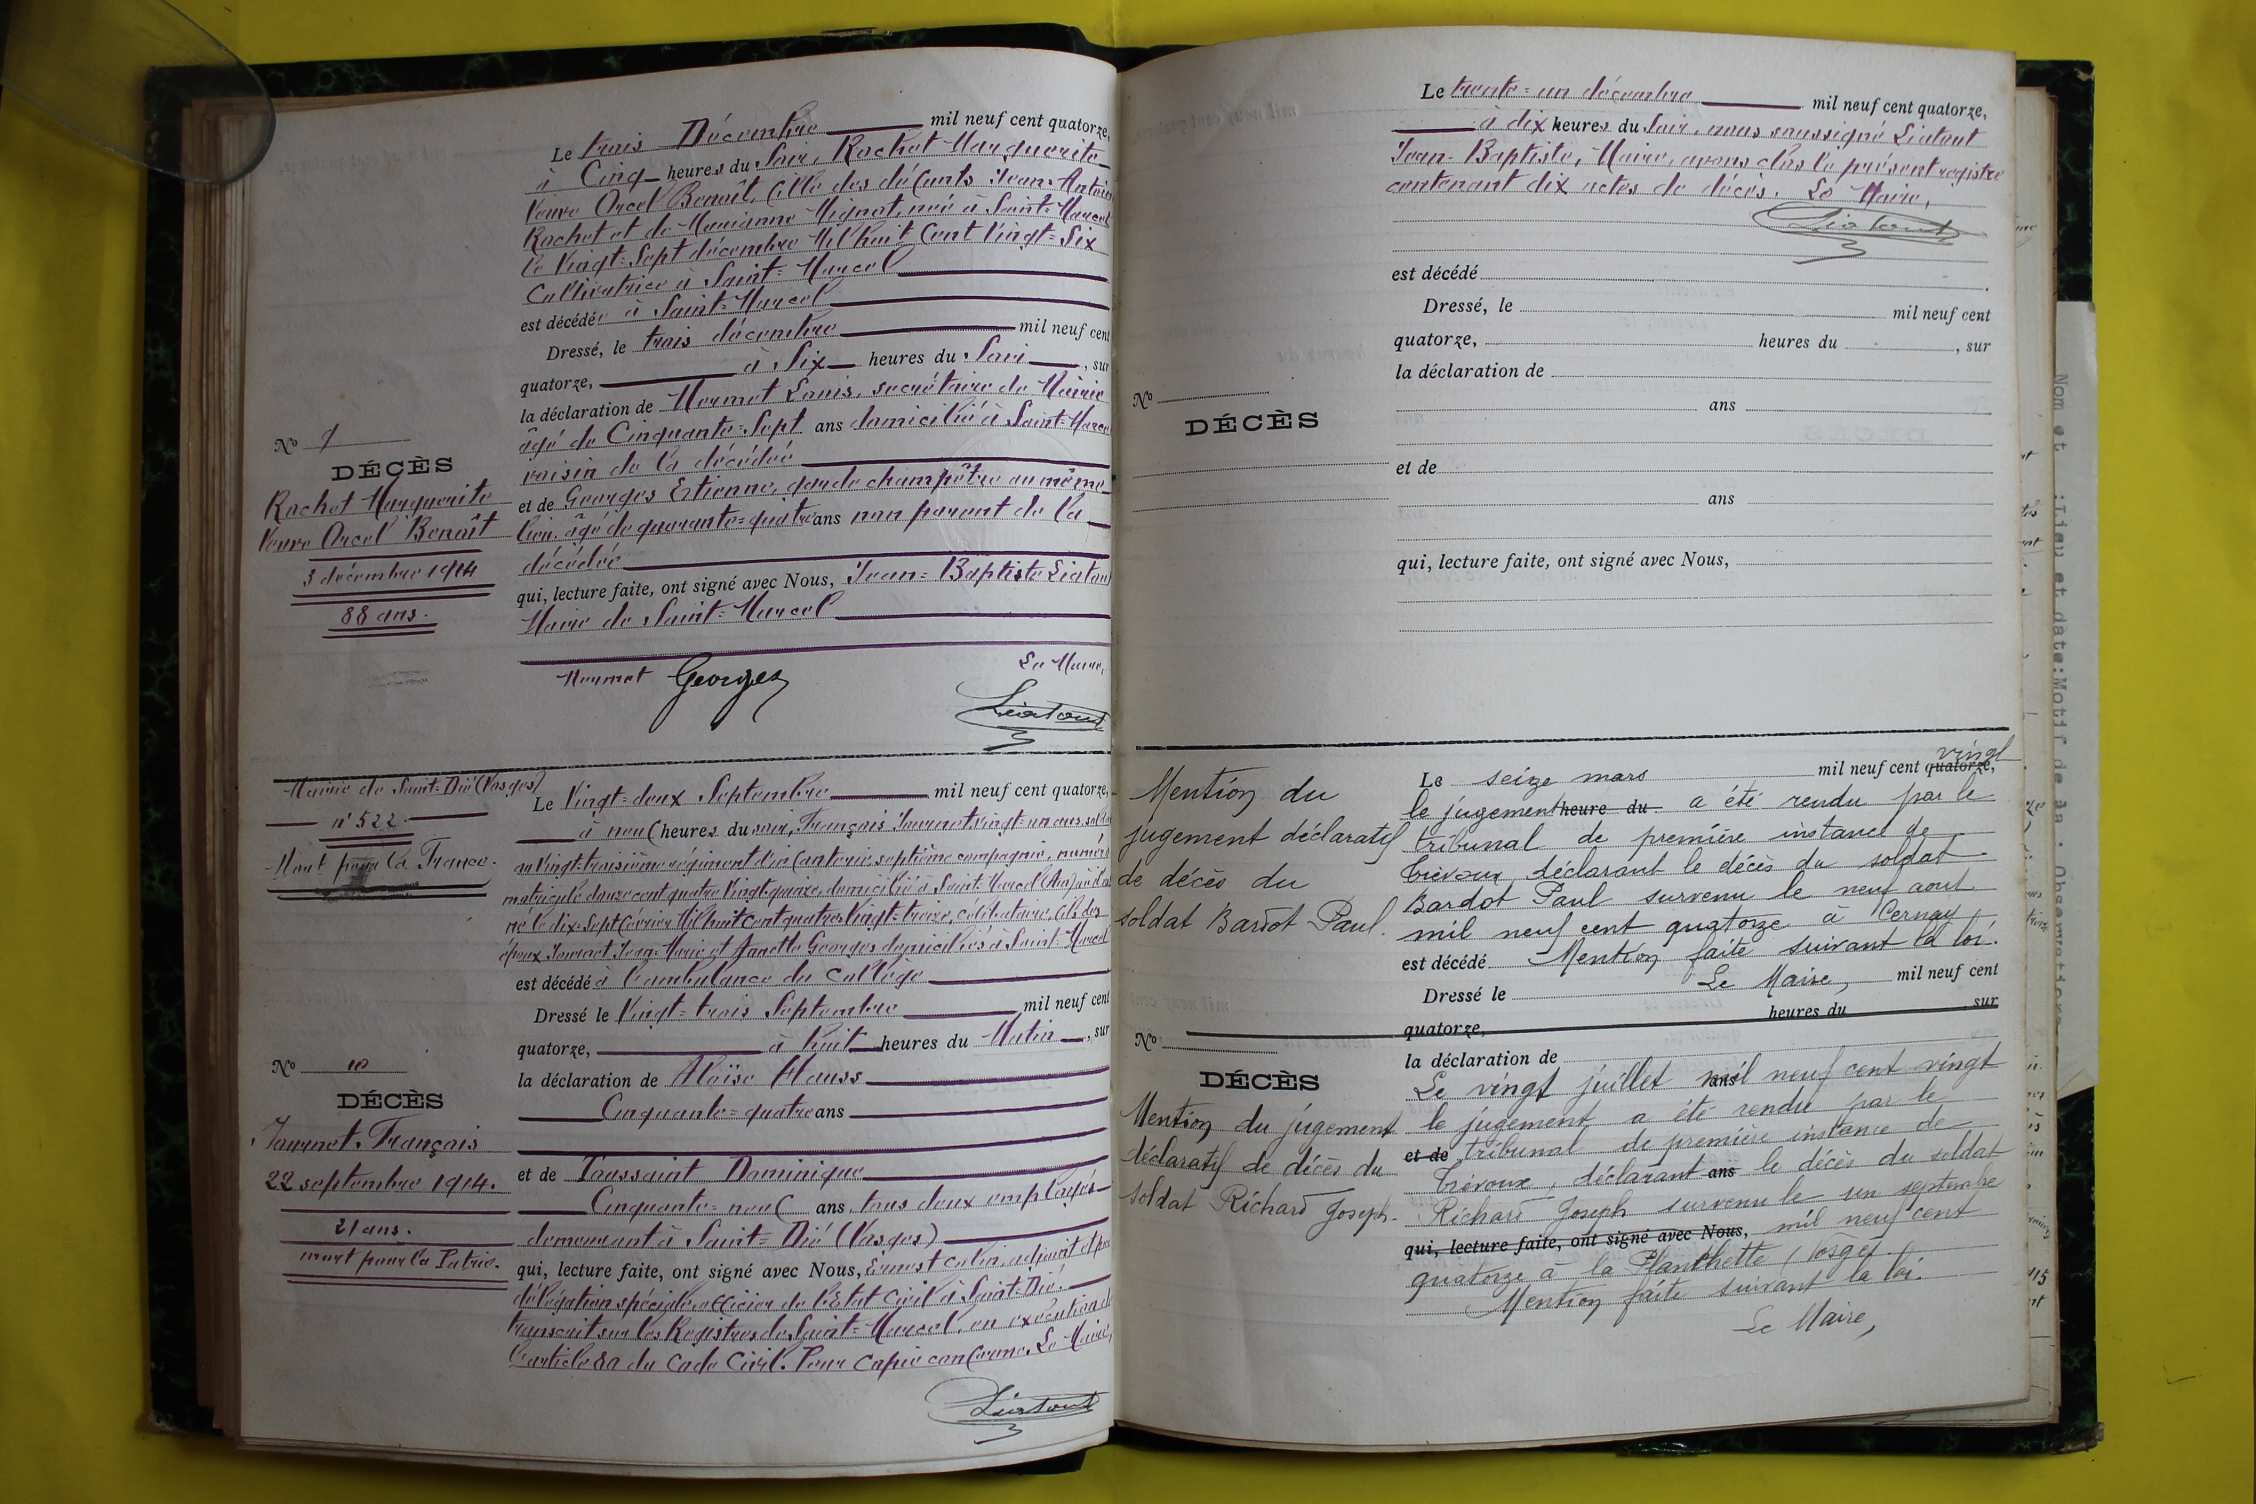 Le trois Décembre mil neuf cent quatorze,
à Cinq heures du Soir, Rochet Marguerite
Veuve Orcel Benoît, fille des défunts Jean-Antoine
Rochet et de Marianne Mignat, née à Saint-Marcel
le Vingt-Sept décembre Mil huit Cent Vingt-Six
Cultivatrice à Saint-Marcel
est décédée à Saint-Marcel
Dressé, le trois décembre mil neuf cent
quatorze, à Six heures du Soir, sur
la déclaration de Mermet Louis, secrétaire de Mairie
âgé de Cinquante-Sept ans domicilié à Saint-Marcel
voisin de la décédée
et de Georges Etienne, garde champêtre au même
lieu, âgé de quarante-quatre ans non parent de la
décédée
qui, lecture faite, ont signé avec Nous, Jean-Baptiste Liatout
Maire de Saint-Marcel
Le Maire,
Mermet Georges
Liatout
No 9
DÉCÈS
Rochet Marguerite
Veuve Orcel Benoît
3 décembre 1914
88 ans.
Mairie de Saint-Dié (Vosges)
n° 522
Mort pour la France.
Le Vingt-deux Septembre mil neuf cent quatorze,
à neuf heures du soir, François Journet vingt-un ans, soldat
au Vingt-troisième régiment d'infanterie, septième compagnie, numéro
matricule douze cent quatre vingt-quinze, domicilié à Saint-Marcel (Ain) où il est
né le dix-Sept février Mil huit cent quatre Vingt-treize, célibataire, fils des
époux Journet Jean-Marie et Janette Georges domiciliés à Saint-Marcel
est décédé à l'ambulance du Collège
Dressé le Vingt-trois Septembre mil neuf cent
quatorze, à huit heures du Matin, sur
la déclaration de Aloïse Hauss
Cinquante-quatre ans
et de Toussaint Dominique
Cinquante-neuf ans, tous deux employés
demeurant à Saint-Dié (Vosges)
qui, lecture faite, ont signé avec Nous, Ernest Colin, adjoint et par
délégation spéciale officier de l'Etat Civil à Saint-Dié.
transcrit sur les Registres de Saint-Marcel, en exécution de
l'article 80 du Code Civil. Pour copie conforme. Le Maire,
Liatout
No 10
DÉCÈS
Journet François
22 septembre 1914.
21 ans.
mort pour la Patrie.
Le trente-un décembre mil neuf cent quatorze,
à dix heures du Soir, nous soussigné Liatout
Jean-Baptiste, Maire, avons clos le présent registre
contenant dix actes de décès. Le Maire,
Liatout
est décédé
Dressé, le mil neuf cent
quatorze, heures du , sur
la déclaration de
ans
et de
ans
qui, lecture faite, ont signé avec Nous,
No
DÉCÈS
Mention du
jugement déclaratif
de décès du
soldat Bardot Paul.
Le seize mars mil neuf cent quatorze, vingt
le jugement heure du a été rendu par le
tribunal de première instance de
Trévoux, déclarant le décès du soldat
Bardot Paul survenu le neuf aout
mil neuf cent quatorze à Cernay
est décédé Mention faite suivant la loi.
Dressé le Le Maire, mil neuf cent
quatorze, heures du sur
la déclaration de
Le vingt juillet ans mil neuf cent vingt
le jugement a été rendu par le
et de tribunal de première instance de
Trévoux, déclarant ans le décès du soldat
Richard Joseph survenu le un septembre
qui, lecture faite, ont signé avec Nous, mil neuf cent
quatorze à la Planchette (Vosges
Mention faite suivant la loi.
Le Maire,
No
DÉCÈS
Mention du jugement
déclaratif de décès du
soldat Richard Joseph.
Nom et
:Lieu et date:Motif de la : Observations